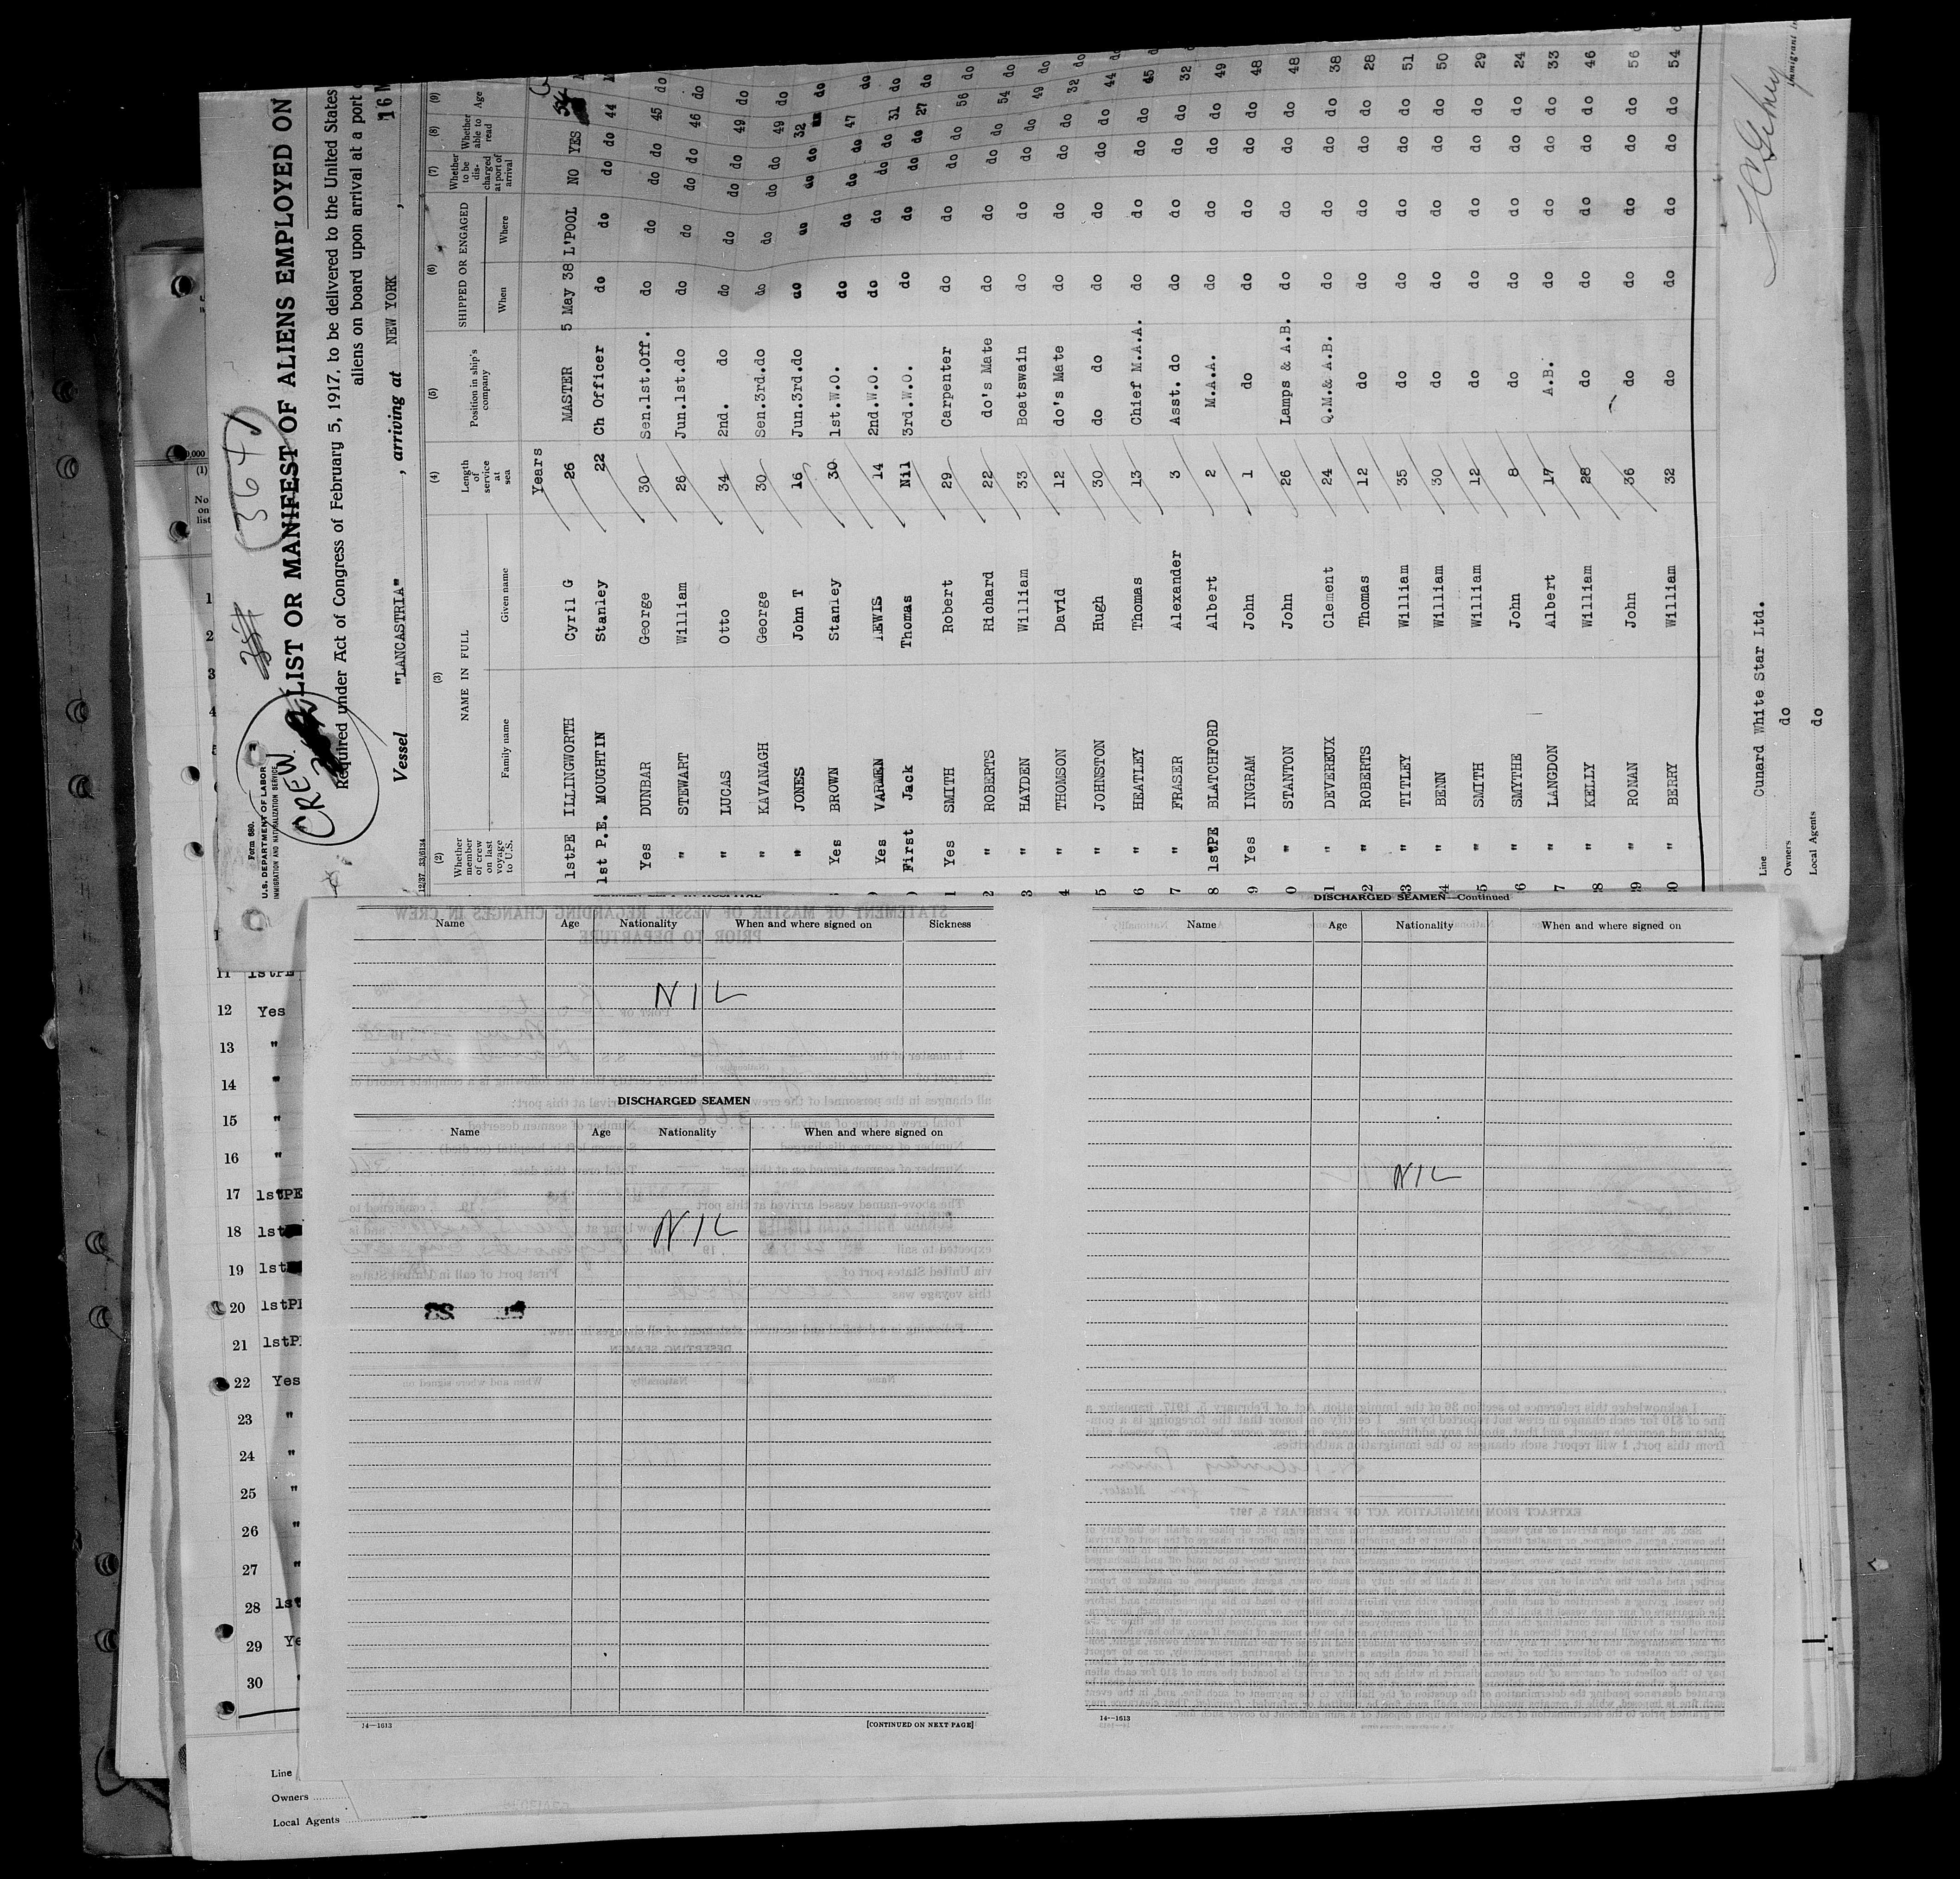 Form 680.
U.S. DEPARTMENT OF LABOR
IMMIGRATION AND NATURALIZATION SERVICE
CREW
364
LIST OR MANIFEST OF ALIENS EMPLOYED ON
Required under Act of Congress of February 5, 1917, to be delivered to the United States
aliens on board upon arrival at a port
Vessel "LANCASTRIA" , arriving at NEW YORK , 16 M
12/37 33/6134
(2) (3) (4) (5) (6) (7) (8) (9)
Whether member of crew on last voyage to U.S. NAME IN FULL Length of service at sea Position in ship's company SHIPPED OR ENGAGED Whether to be discharged at port of arrival Whether able to read Age
Family name Given name When Where
Years
1stPE ILLINGWORTH Cyril G 26 MASTER 5 May 38 L'POOL NO YES
1st P.E. MOUGHTIN Stanley 22 Ch Officer do do do do 44
Yes DUNBAR George 30 Sen.1st.Off. do do do do 45 do
" STEWART William 26 Jun.1st.do do do do do 46 do
" LUCAS Otto 34 2nd. do do do do do 49 do
" KAVANAGH George 30 Sen.3rd.do do do do do 49 do
" JONES John T 16 Jun.3rd.do do do do do 32 do
Yes BROWN Stanley 30 1st.W.O. do do do do 47 do
Yes VARMEN LEWIS 14 2nd.W.O. do do do do 31 do
First Jack Thomas Nil 3rd.W.O. do do do do 27 do
1 Yes SMITH Robert 29 Carpenter do do do do 56 do
2 " ROBERTS Richard 22 do's Mate do do do do 54 do
3 " HAYDEN William 33 Boatswain do do do do 49 do
4 " THOMSON David 12 do's Mate do do do do 32 do
5 " JOHNSTON Hugh 30 do do do do do do 44 do
6 " HEATLEY Thomas 13 Chief M.A.A. do do do do 45 do
7 " FRASER Alexander 3 Asst. do do do do do 32 do
8 1stPE BLATCHFORD Albert 2 M.A.A. do do do do 49
9 Yes INGRAM John 1 do do do do do 48
0 " STANTON John 26 Lamps & A.B. do do do do 48
21 " DEVEREUX Clement 24 Q.M.& A.B. do do do do 38
22 " ROBERTS Thomas 12 do do do do do 28
23 " TITLEY William 35 do do do do do 51
24 " BENN William 30 do do do do do 50
25 " SMITH William 12 do do do do do 29
6 " SMYTHE John 8 do do do do do 24
7 " LANGDON Albert 17 A.B. do do do do 33
28 " KELLY William 28 do do do do do 46
29 " RONAN John 36 do do do do do 56
30 " BERRY William 32 do do do do do 54
Line Cunard White Star Ltd.
Owners do
Local Agents do
Immigrant
(1)
No on list
1
2
3
4
11 1stPE
12 Yes
13 "
14 "
15 "
16 "
17 1stPE
18 1st
19 1st
20 1stPE
21 1stPE
22 Yes
23 "
24 "
25 "
26 "
27 "
28 1st
29 Ye
30
Line
Owners
Local Agents
Name Age Nationality When and where signed on Sickness
NIL
DISCHARGED SEAMEN
Name Age Nationality When and where signed on
NIL
14—1613 [CONTINUED ON NEXT PAGE]
DISCHARGED SEAMEN—Continued
Name Age Nationality When and where signed on
NIL
14—1613